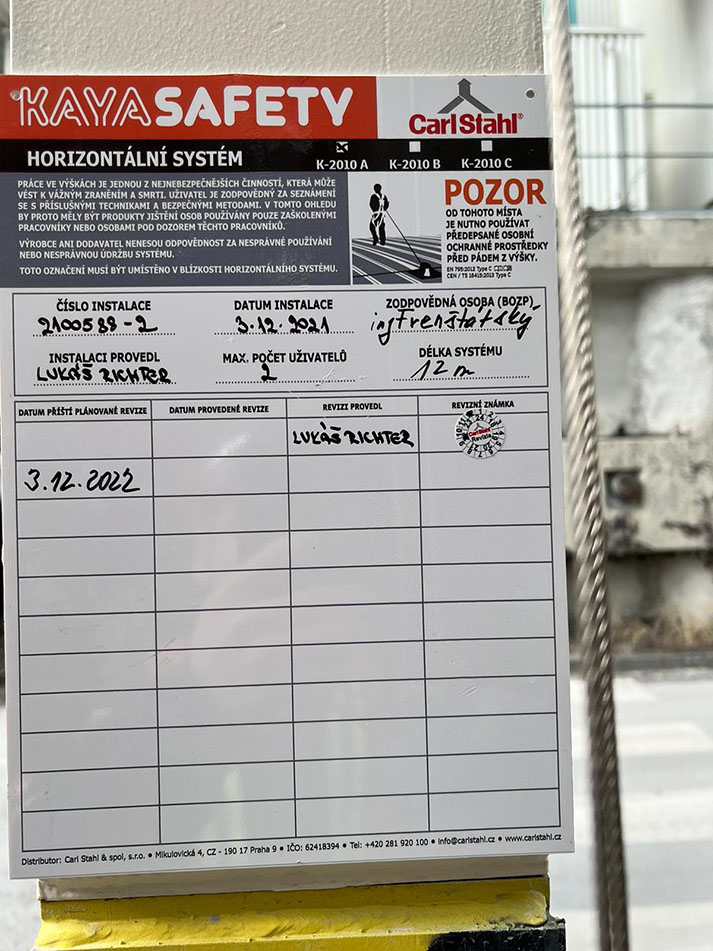 KAYASAFETY
CarlStahl®
HORIZONTÁLNÍ SYSTÉM
K-2010 A K-2010 B K-2010 C
PRÁCE VE VÝŠKÁCH JE JEDNOU Z NEJNEBEZPEČNĚJŠÍCH ČINNOSTÍ, KTERÁ MŮŽE
VÉST K VÁŽNÝM ZRANĚNÍM A SMRTI. UŽIVATEL JE ZODPOVĚDNÝ ZA SEZNÁMENÍ
SE S PŘÍSLUŠNÝMI TECHNIKAMI A BEZPEČNÝMI METODAMI. V TOMTO OHLEDU
BY PROTO MĚLY BÝT PRODUKTY JIŠTĚNÍ OSOB POUŽÍVÁNY POUZE ZAŠKOLENÝMI
PRACOVNÍKY NEBO OSOBAMI POD DOZOREM TĚCHTO PRACOVNÍKŮ.
VÝROBCE ANI DODAVATEL NENESOU ODPOVĚDNOST ZA NESPRÁVNÉ POUŽÍVÁNÍ
NEBO NESPRÁVNOU ÚDRŽBU SYSTÉMU.
TOTO OZNAČENÍ MUSÍ BÝT UMÍSTĚNO V BLÍZKOSTI HORIZONTÁLNÍHO SYSTÉMU.
POZOR
OD TOHOTO MÍSTA
JE NUTNO POUŽÍVAT
PŘEDEPSANÉ OSOBNÍ
OCHRANNÉ PROSTŘEDKY
PŘED PÁDEM Z VÝŠKY.
EN 795:2012 Type C
CEN / TS 16415:2013 Type C
ČÍSLO INSTALACE DATUM INSTALACE ZODPOVĚDNÁ OSOBA (BOZP)
2100588-2 3.12.2021 ing Frenštatský
INSTALACI PROVEDL MAX. POČET UŽIVATELŮ DÉLKA SYSTÉMU
LUKÁŠ RICHTER 2 12 m
DATUM PŘÍŠTÍ PLÁNOVANÉ REVIZE DATUM PROVEDENÉ REVIZE REVIZI PROVEDL REVIZNÍ ZNÁMKA
LUKÁŠ RICHTER CarlStahl
Revize
3.12.2022
Distributor: Carl Stahl & spol, s.r.o. • Mikulovická 4, CZ - 190 17 Praha 9 • IČO: 62418394 • Tel: +420 281 920 100 • info@carlstahl.cz • www.carlstahl.cz